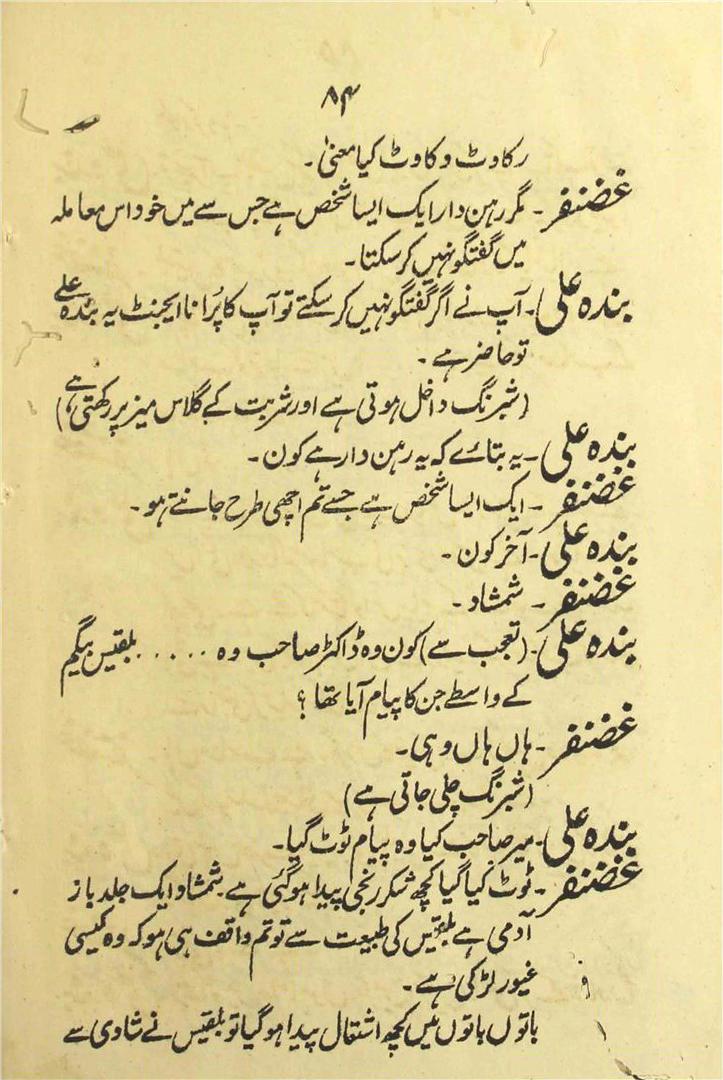 ۸۴
رکاوٹ وکاوٹ کیا معنیٰ۔
غضنفر۔ مگر رہن دار ایک ایسا شخص ہے جس سے میں خود اس معاملہ
میں گفتگو نہیں کر سکتا۔
بندہ علی۔ آپ نے اگر گفتگو نہیں کر سکتے تو آپ کا پُرانا ایجنٹ یہ بندہ علی
تو حاضر ہے۔
(شبرنگ داخل ہوتی ہے اور شربت کے گلاس میز پر رکھتی ہے)
بندہ علی۔ یہ بتائے کہ یہ رہن دار ہے کون۔
غضنفر۔ ایک ایسا شخص ہے جسے تم اچھی طرح جانتے ہو۔
بندہ علی۔ آخر کون۔
غضنفر۔ شمشاد۔
بندہ علی۔ (تعجب سے) کون وہ ڈاکٹر صاحب وہ ..... بلقیس بیگم
کے واسطے جن کا پیام آیا تھا؟
غضنفر۔ ہاں ہاں وہی۔
(شبرنگ چلی جاتی ہے)
بندہ علی۔ میر صاحب کیا وہ پیام ٹوٹ گیا۔
غضنفر۔ ٹوٹ کیا گیا کچھ شکر رنجی پیدا ہو گئی ہے۔ شمشاد ایک جلد باز
آدمی ہے بلقیس کی طبیعت سے تو تم واقف ہی ہو کہ وہ کیسی
غیور لڑکی ہے۔
باتوں باتوں میں کچھ اشتعال پیدا ہو گیا تو بلقیس نے شادی سے